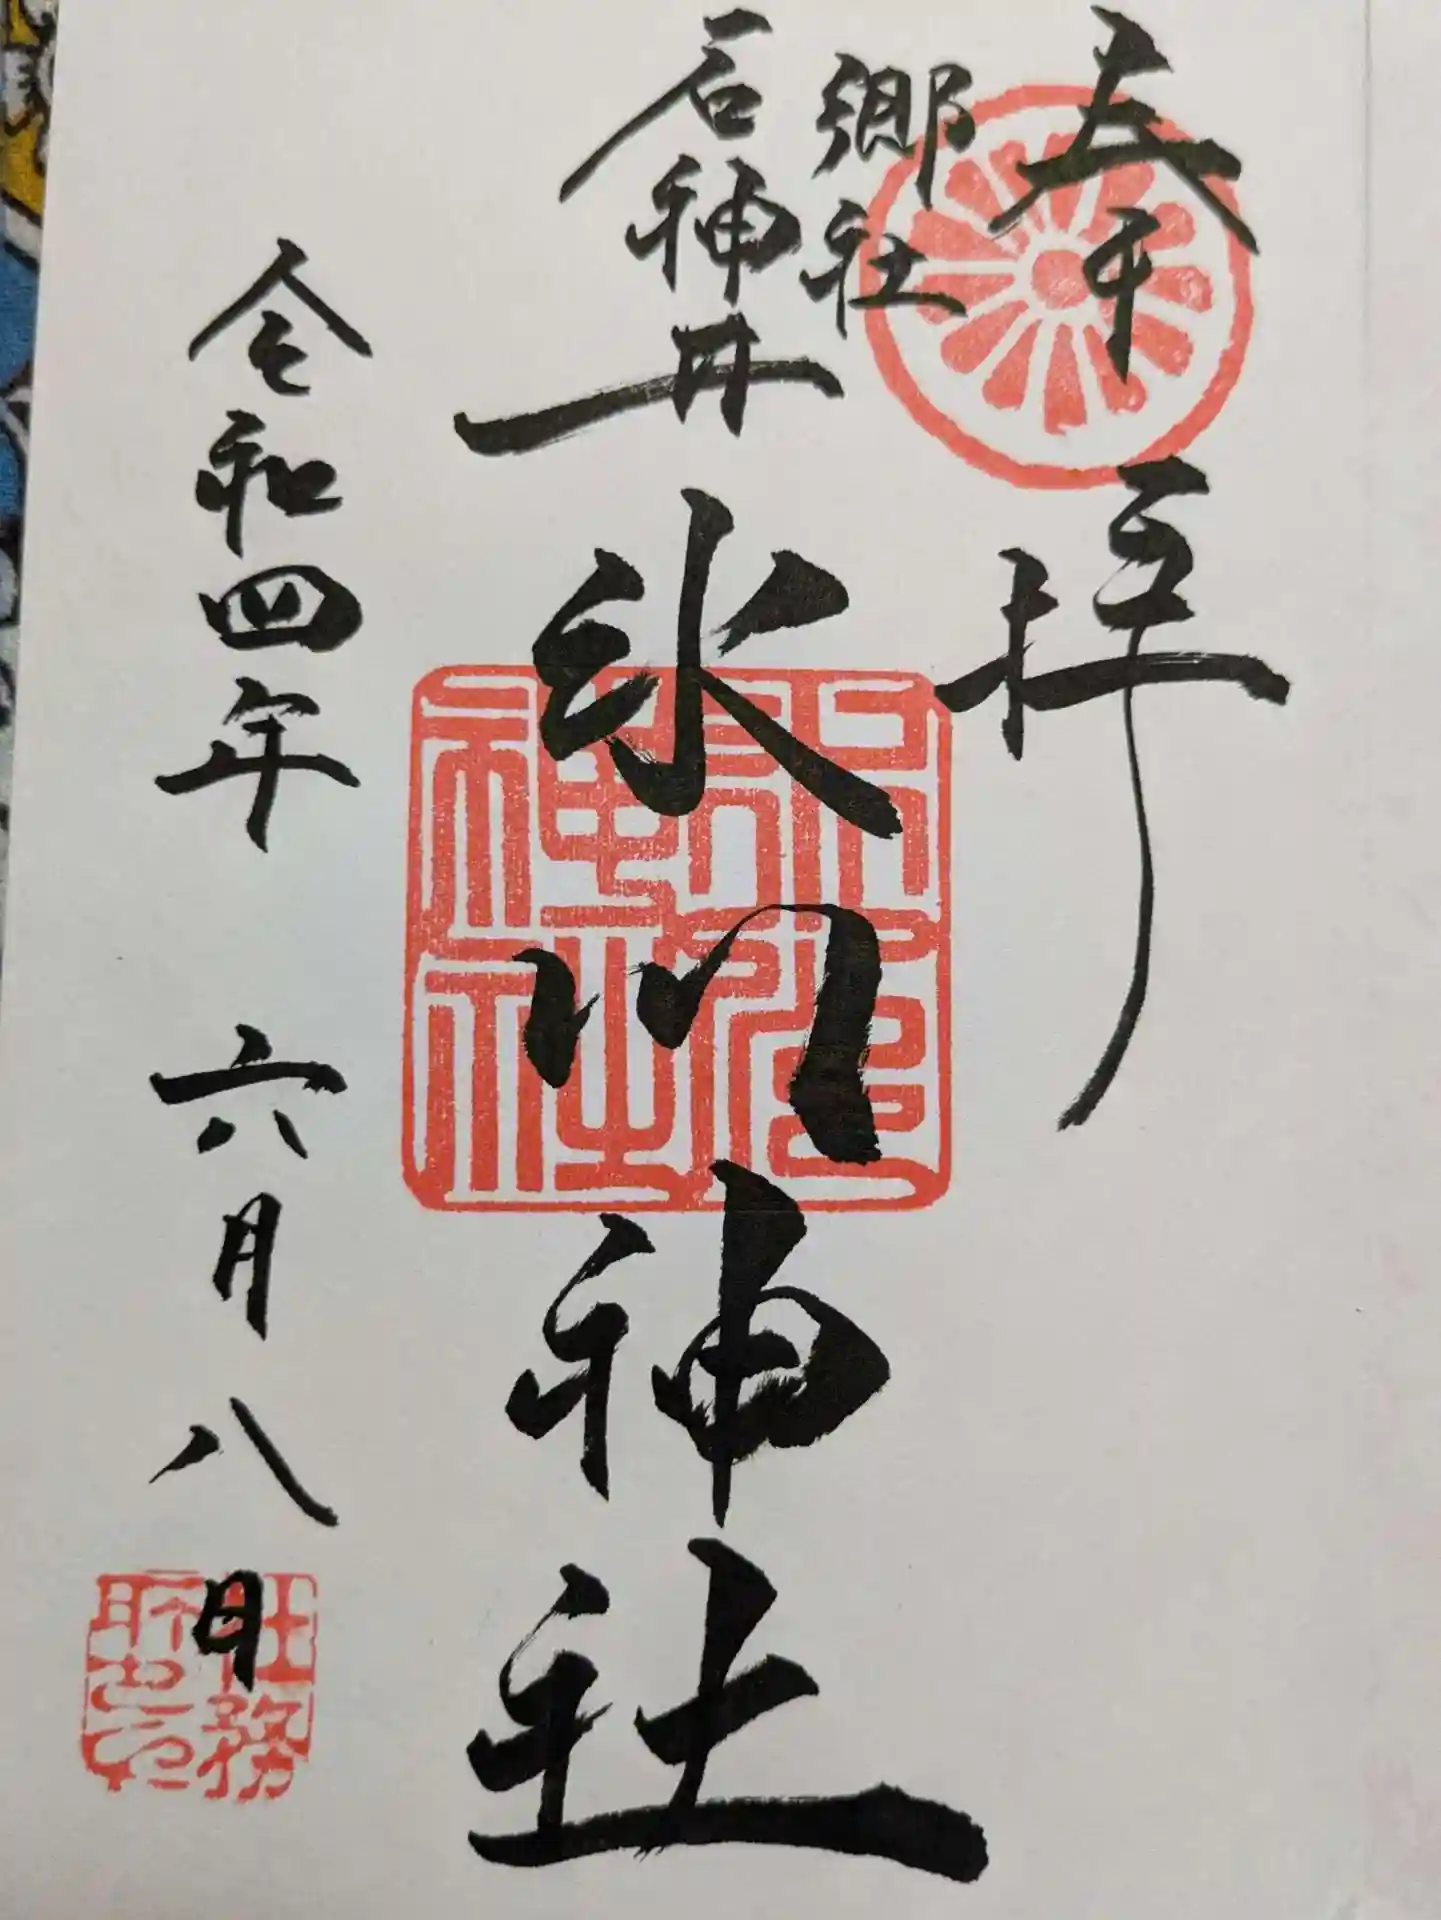 奉拝
郷社
石神井
氷川神社
氷川神社
令和四年 六月八日
社務所之印